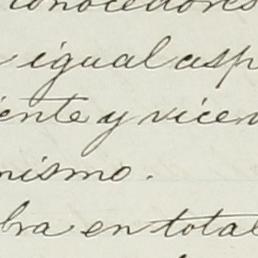 conocedores
igual asp
iente y vicev
mismo.
bra en total